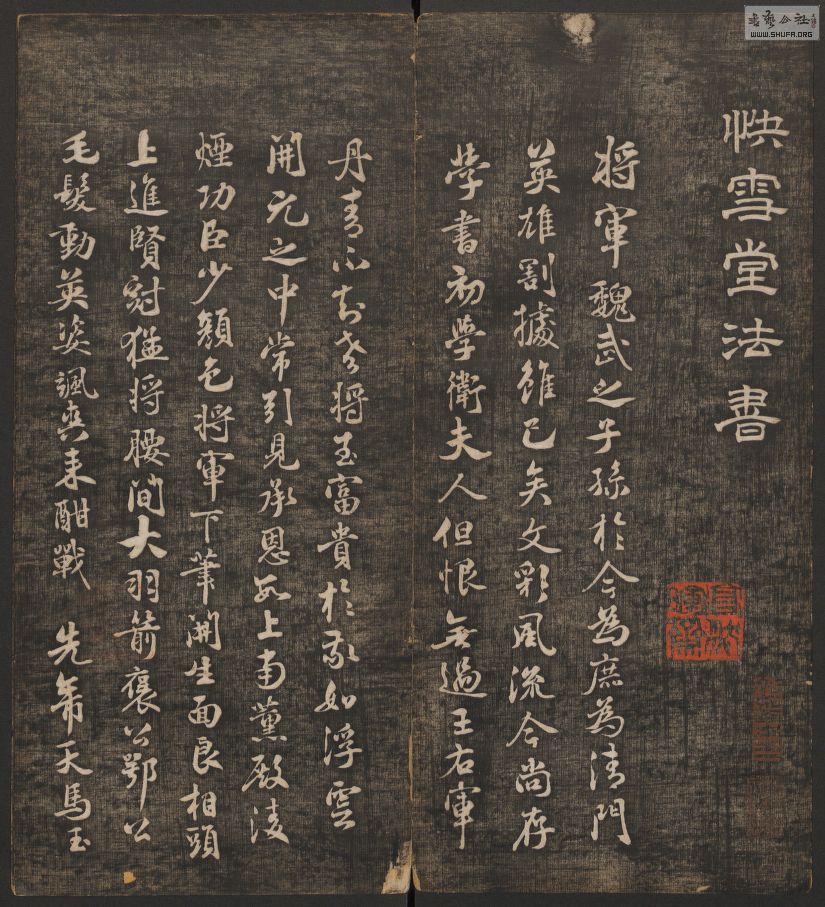 快雪堂法書
将軍魏武之子孫於今為庶為清門
英雄割據雖已矣文彩風流今尚存
学書初學衛夫人但恨無過王右軍
丹青不知老将至富貴於我如浮雲
開元之中常引見承恩數上南薰殿淩
煙功臣少顏色将軍下筆開生面良相頭
上進賢冠猛将腰間大羽箭褒公鄂公
毛髮動英姿颯爽来酣戰 先帝天馬玉
書藝公社
WWW.SHUFA.ORG